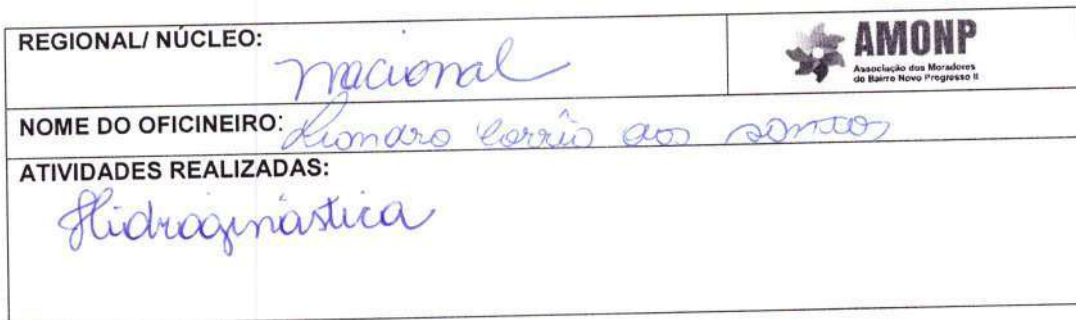 REGIONAL/ NÚCLEO: nacional
AMONP
Associação dos Moradores
do Bairro Novo Progresso II
NOME DO OFICINEIRO: Leandro Corrêa dos santos
ATIVIDADES REALIZADAS:
Hidroginástica